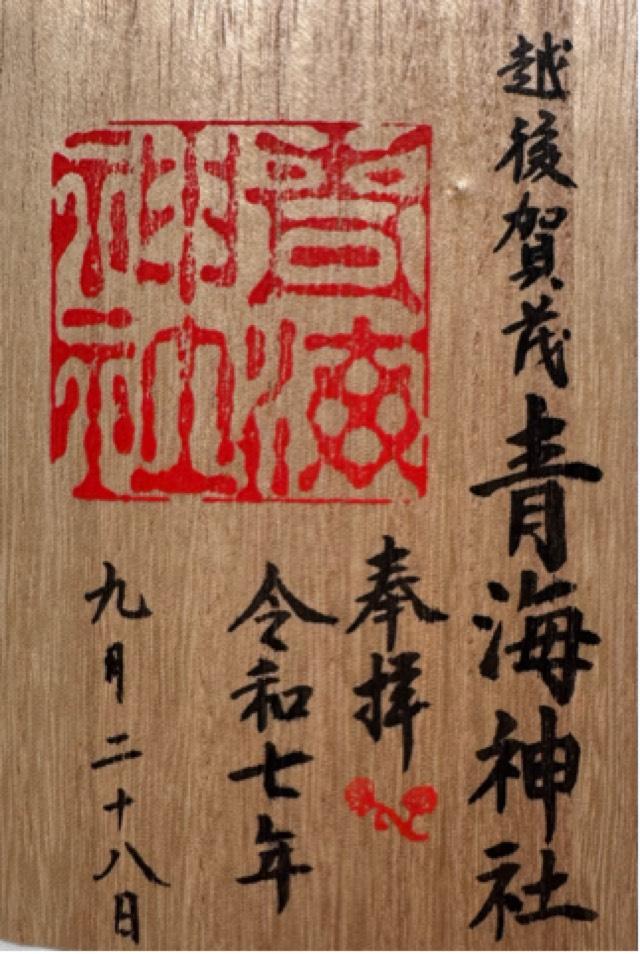 越後賀茂青海神社
奉拝
令和七年
九月二十八日
青海神社